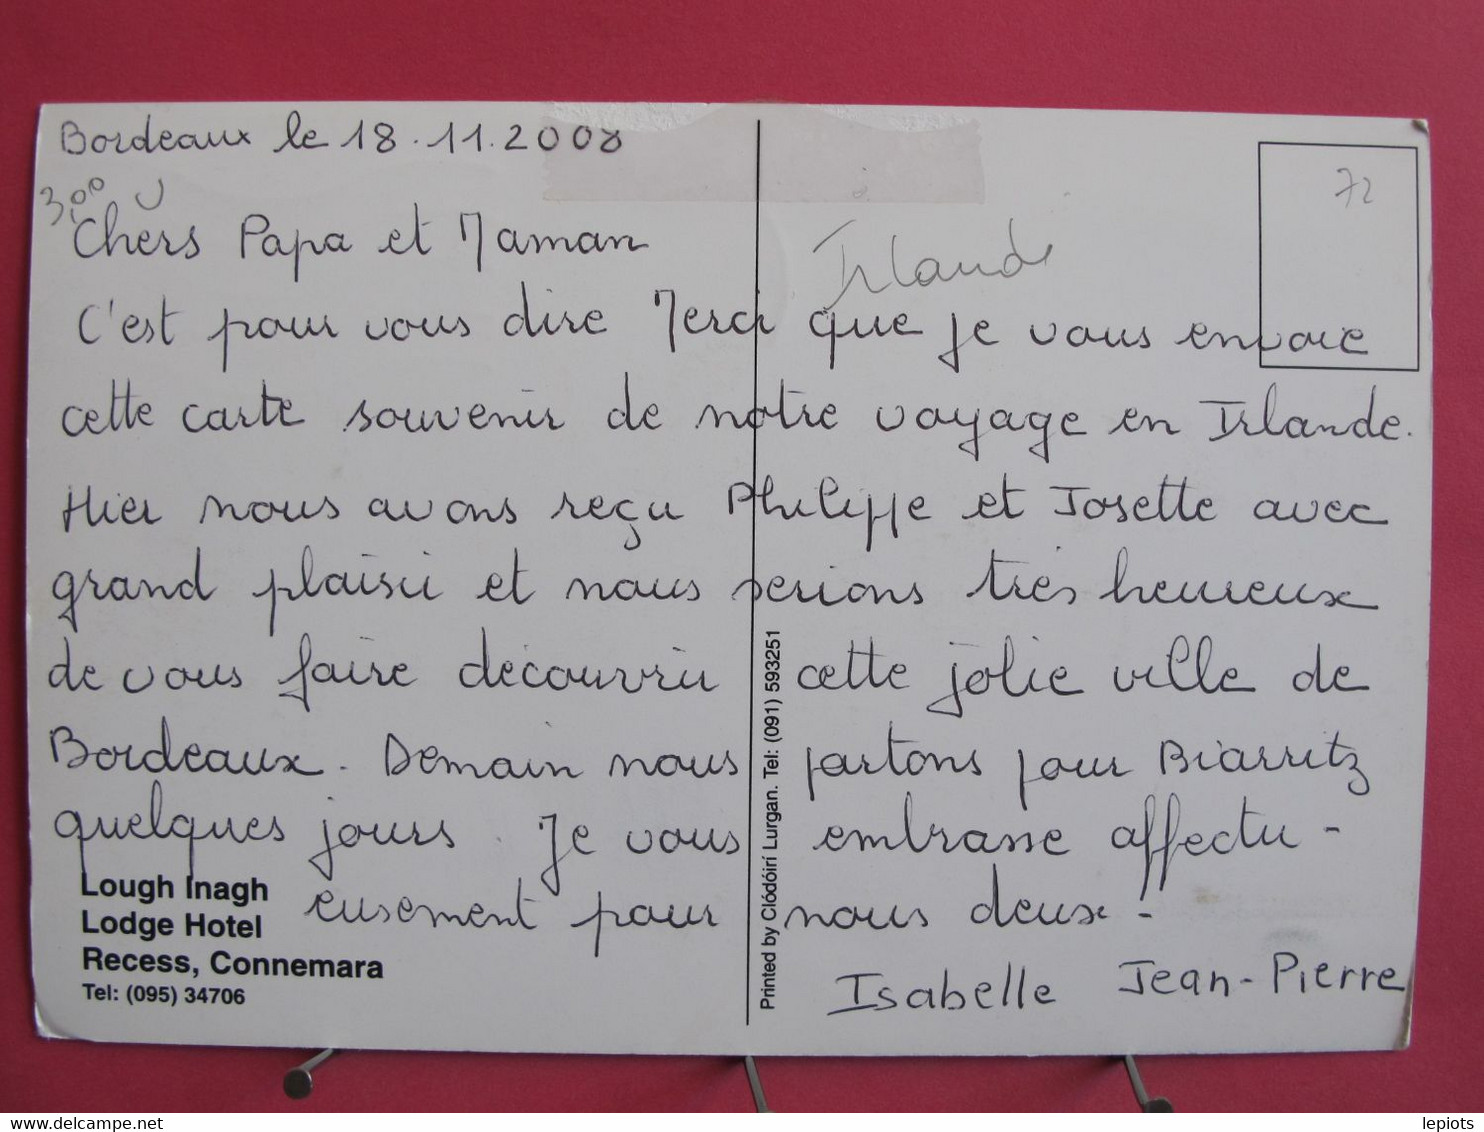 Bordeaux le 18.11.2008
300
Chers Papa et Maman
Irlande
72
C'est pour vous dire Merci que je vous envoie
cette carte souvenir de notre voyage en Irlande.
Hier nous avons reçu Philippe et Josette avec
grand plaisir et nous serions très heureux
de vous faire découvrir cette jolie ville de
Bordeaux. Demain nous partons pour Biarritz
quelques jours. Je vous embrasse affectu-
eusement pour nous deux.
Isabelle Jean-Pierre
Lough Inagh
Lodge Hotel
Recess, Connemara
Tel: (095) 34706
Printed by Clódóirí Lurgan. Tel: (091) 593251
www.delcampe.net
lepiots